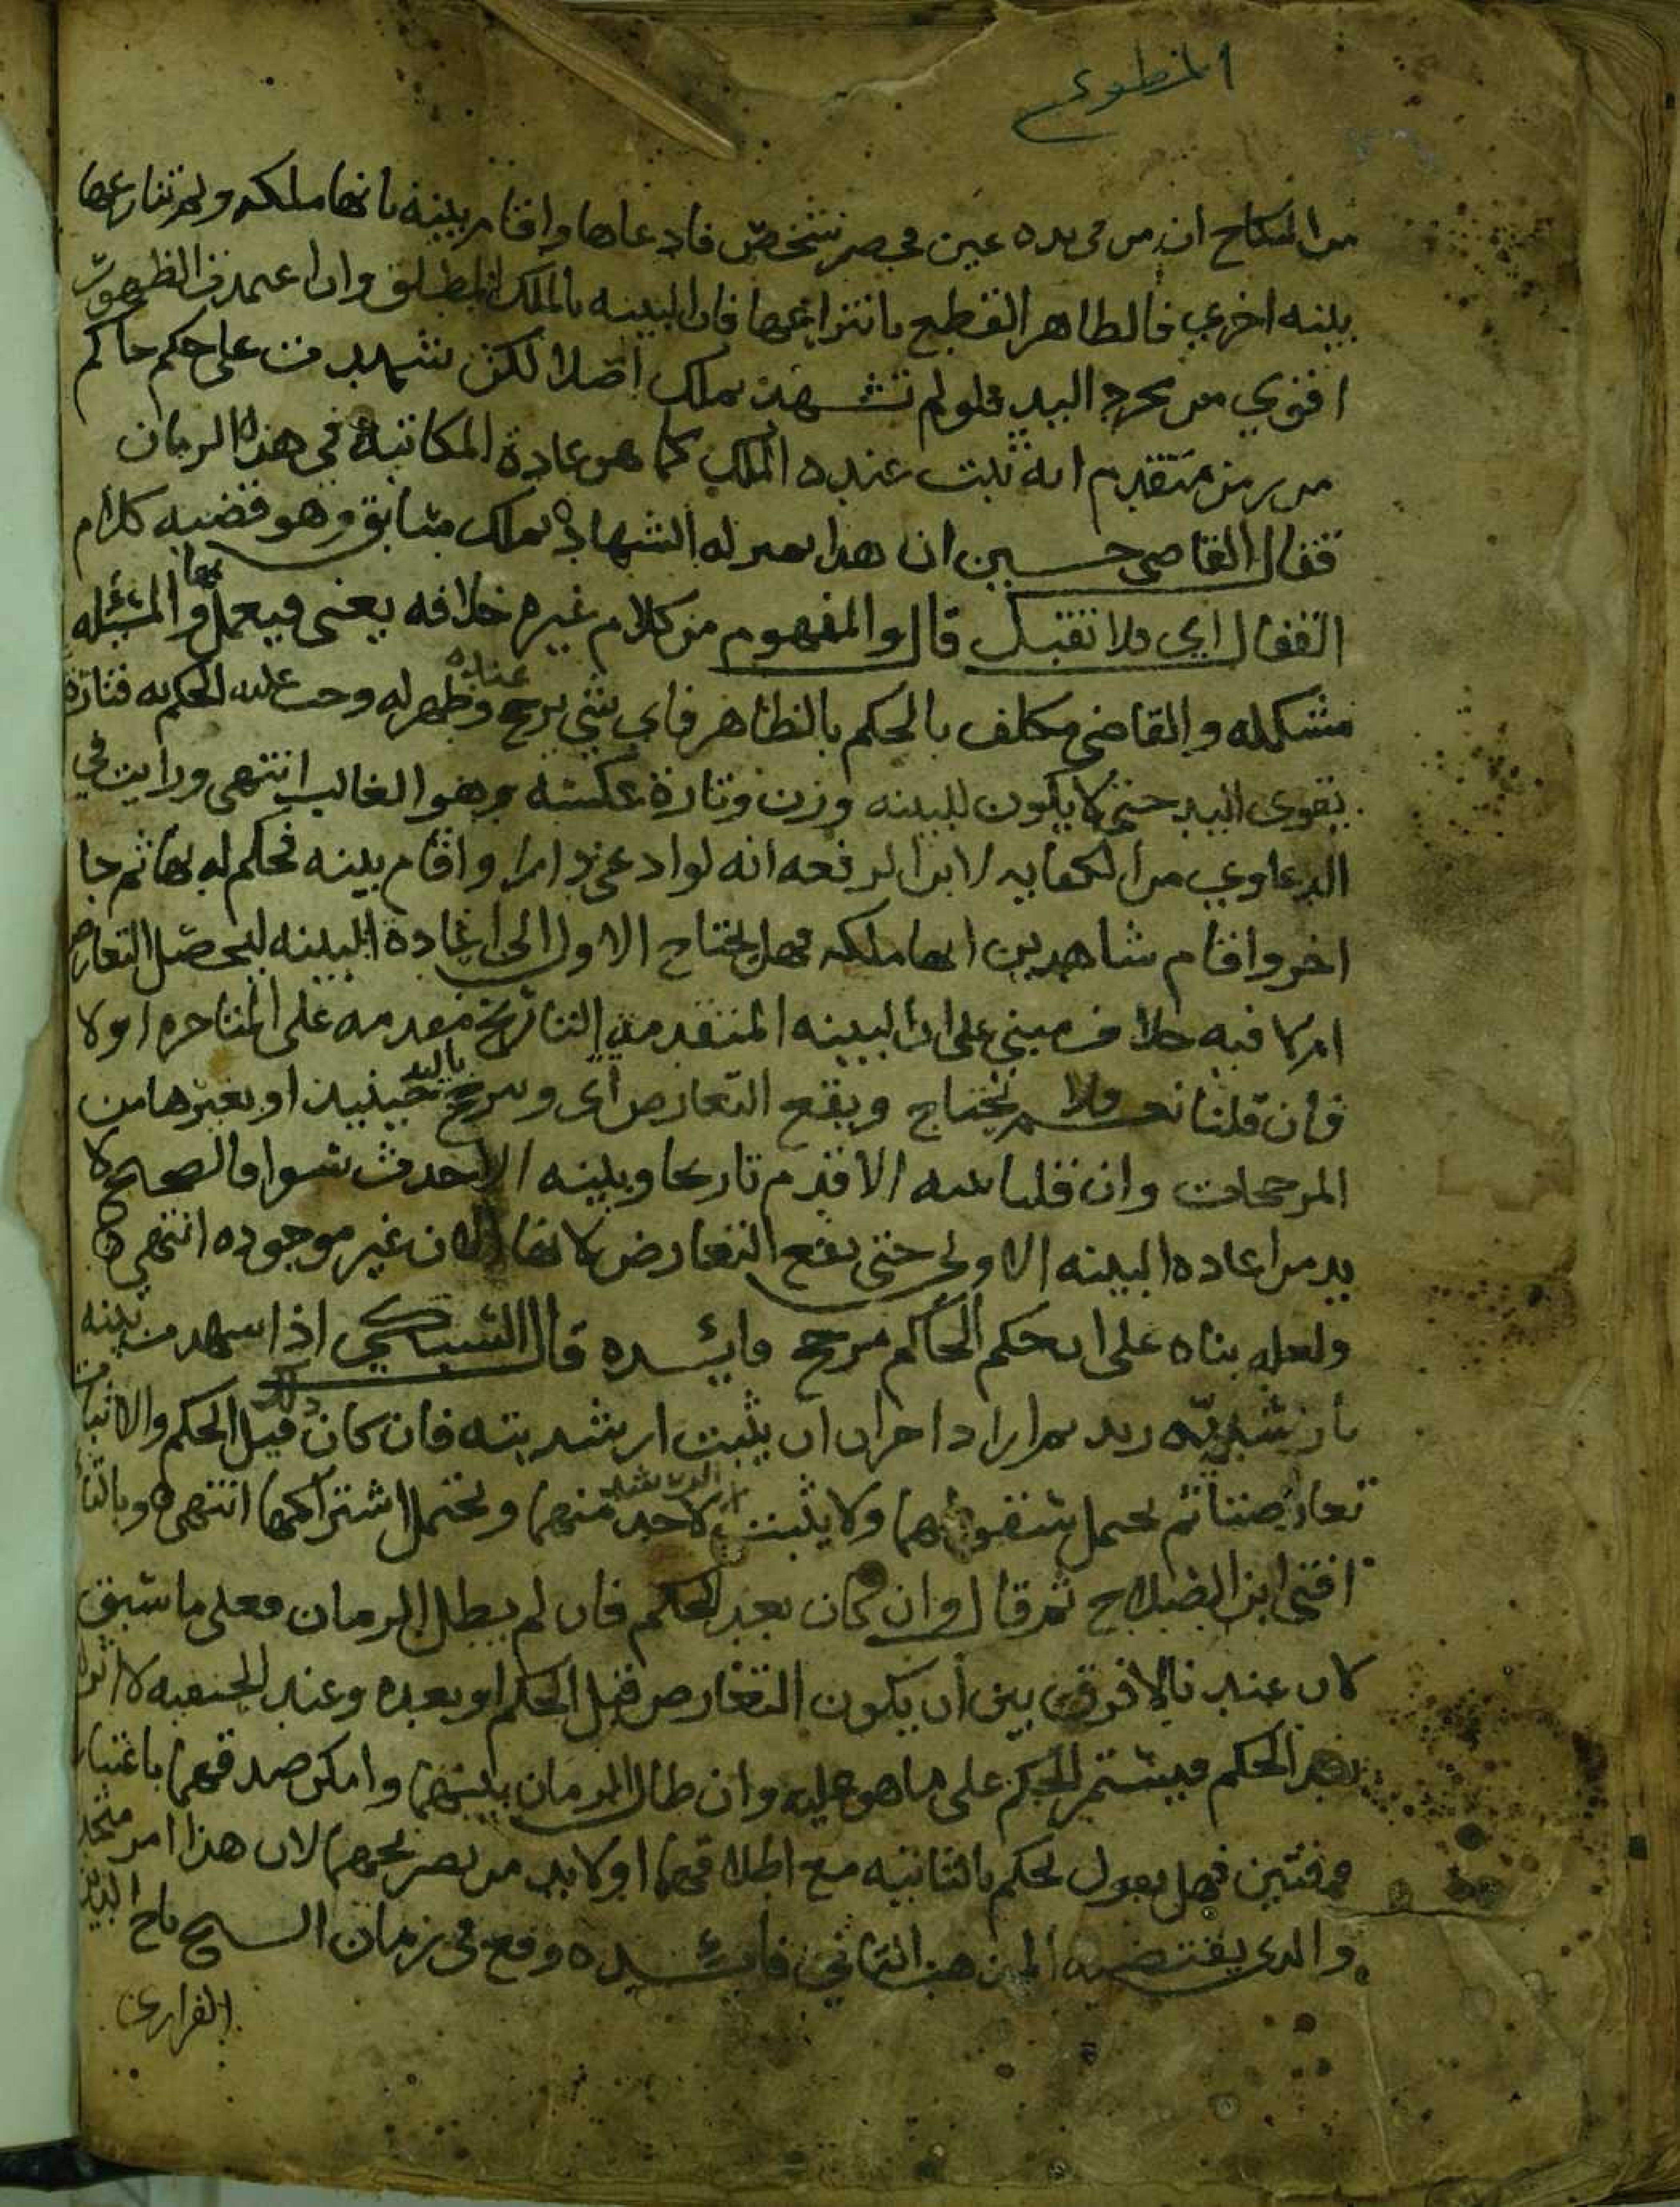 المخطوى
من النكاح ان من في يده عين فحصر شخص فادعاها واقام بينه بانها ملكه ولم تنازعها
بينه اخري فالظاهر القطع بانتزاعها فان البينه بالملك المطلق وان اعتمدت الظهور
اقوي من مجرد اليد فلو لم تشهد بملك اصلا لكن شهدت على حكم حاكم
من زمن متقدم انه ثبت عنده الملك كما هو عادة المكاتبة في هذا الزمان
فقال القاضي حسين ان هذا بمنزله الشهادة بملك سابق وهو قضيه كلام
القفال اي فلا تقبل قال والمفهوم من كلام غيره خلافه يعنى فيعمل بها والمسئله
مشكله والقاضي مكلف بالحكم بالظاهر فاي شي ترجح عنده وظهر له وجب عليه الحكم به فتارة
يقوى اليد حتى لا يكون للبينه وزن وتارة عكسه وهو الغالب انتهى ورايت في
الدعاوي من الكفايه لابن الرفعه انه لو ادعى دارا واقام بينه فحكم له بها ثم جا
اخر واقام شاهدين انها ملكه فهل يحتاج الاول الى اعادة البينه ليحصل التعارض
ام لا فيه خلاف مبني على ان البينه المتقدمة التاريخ مقدمه على المتاخره اولا
فان قلنا نعم فلا يحتاج ويقع التعارض اى ويرجح حينيذ باليد او بغيرها من
المرجحات وان قلنا بينه الاقدم تاريخا وبينه الاحدث سوا فالصحيح لا
بد من اعاده البينه الاولى حتى يقع التعارض لانها الان غير موجوده انتهى
ولعله بناه على ان حكم الحاكم مرجح فايسده قال السبكي اذا شهدت بينه
بارشديه زيد ثم اراد اخر ان يثبت ارشديته فان كان ذلك قبل الحكم والاثبات
تعارضتا ثم يحتمل سقوطهما ولا يثبت الرشد لاحد منهما ويحتمل اشتراكهما انتهى وبالثاني
افتى ابن الصلاح ثم قال وان كان بعد الحكم فان لم يطل الزمان فعلى ما سبق
لان عندنا لا فرق بين ان يكون التعارض قبل الحكم او بعده وعند الحنفيه لا اثر له
بعد الحكم فيستمر الحكم على ما هو عليه وان طال الزمان بينهما وامكن صدقهما باعتبار
وقتين فهل يقول يحكم بالثانيه مع اطلاقهما او لابد من تصريحهما لان هذا امر متجدد
والذى يقتضيه المذهب الثاني فايسده وقع في زمان الشيخ تاج الدين
الفزارى